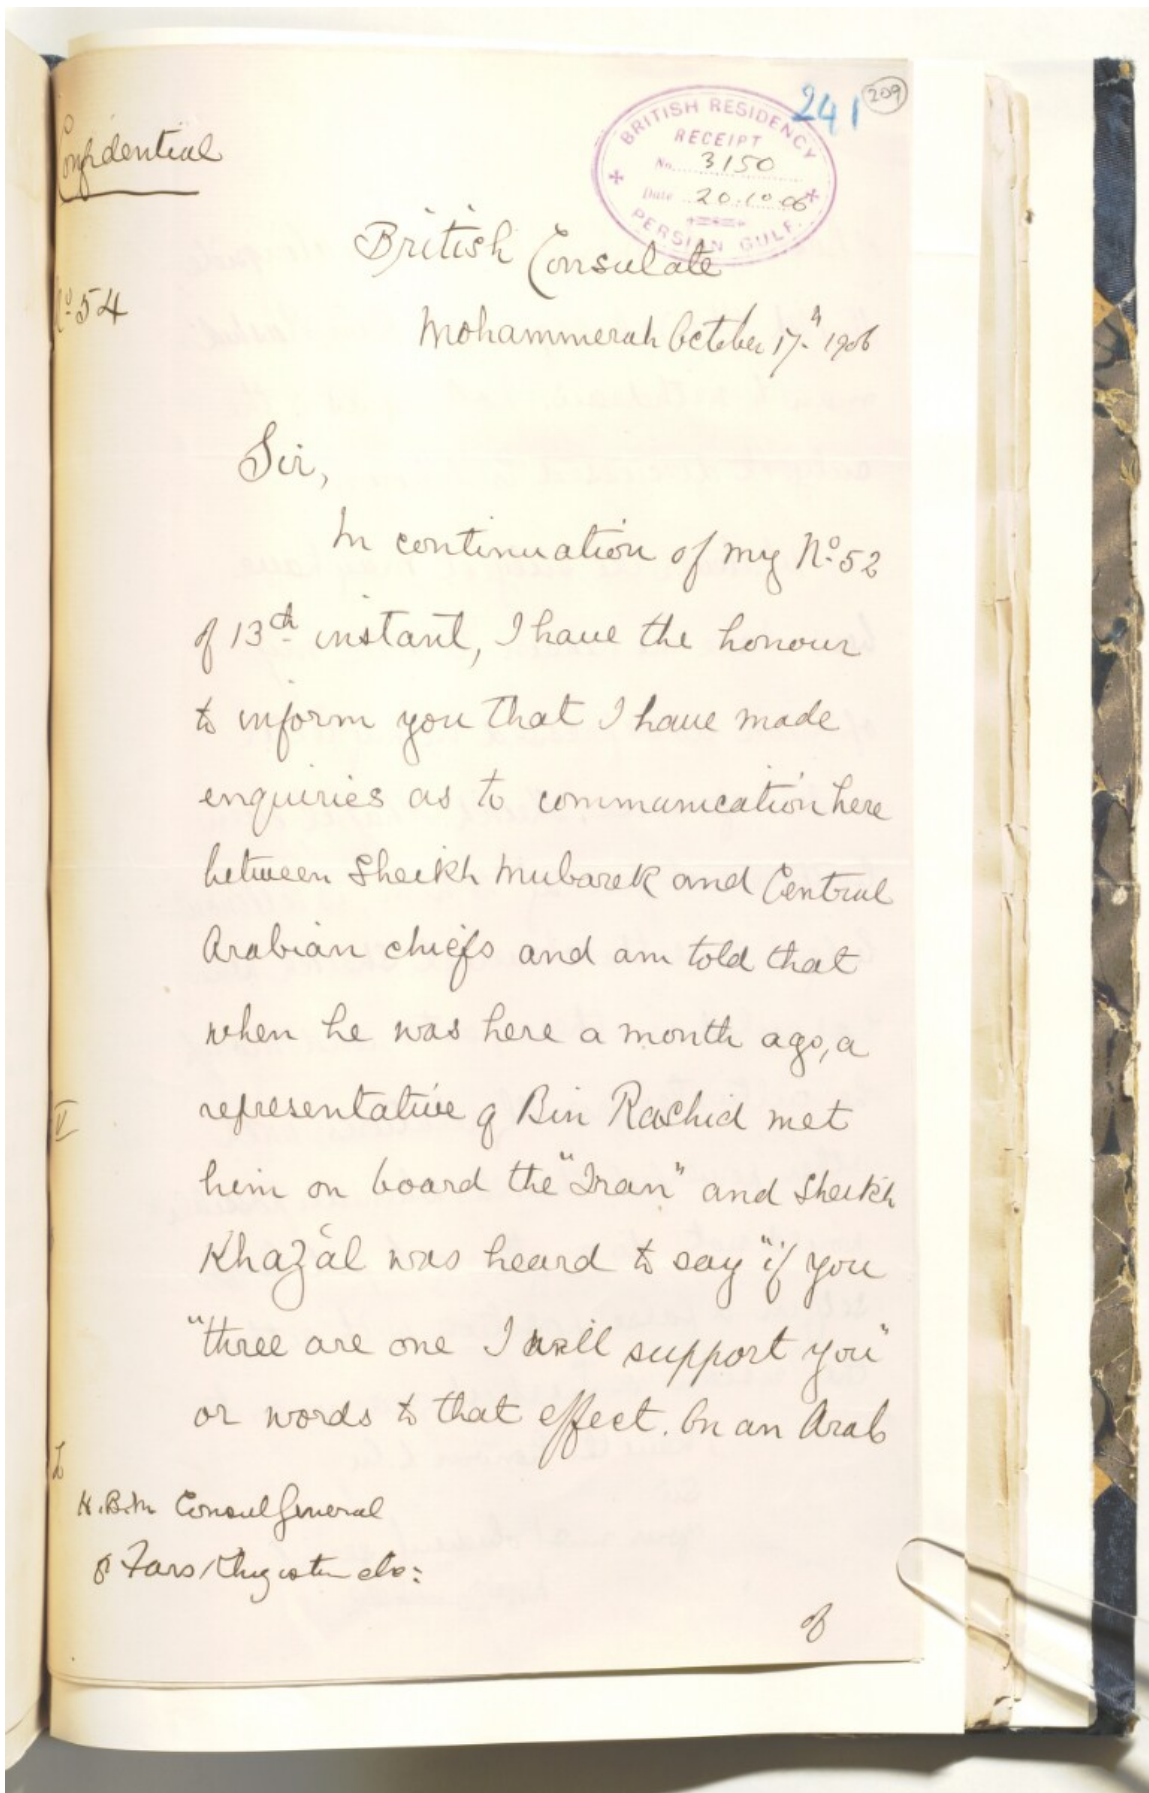 241
209
BRITISH RESIDENCY
RECEIPT
No. 3150
Date 20.10.06
PERSIAN GULF.
Confidential
British Consulate
No 54
Mohammerah October 17th 1906
Sir,
In continuation of my No 52
of 13th instant, I have the honour
to inform you that I have made
enquiries as to communication here
between Sheikh Mubarek and Central
Arabian chiefs and am told that
when he was here a month ago, a
representative of Bin Rashid met
him on board the "Iran" and Sheikh
Khazal was heard to say "if you
"three are one I will support you"
or words to that effect. On an Arab
H.B.M Consul General
of Fars, Khuzistan etc:
of